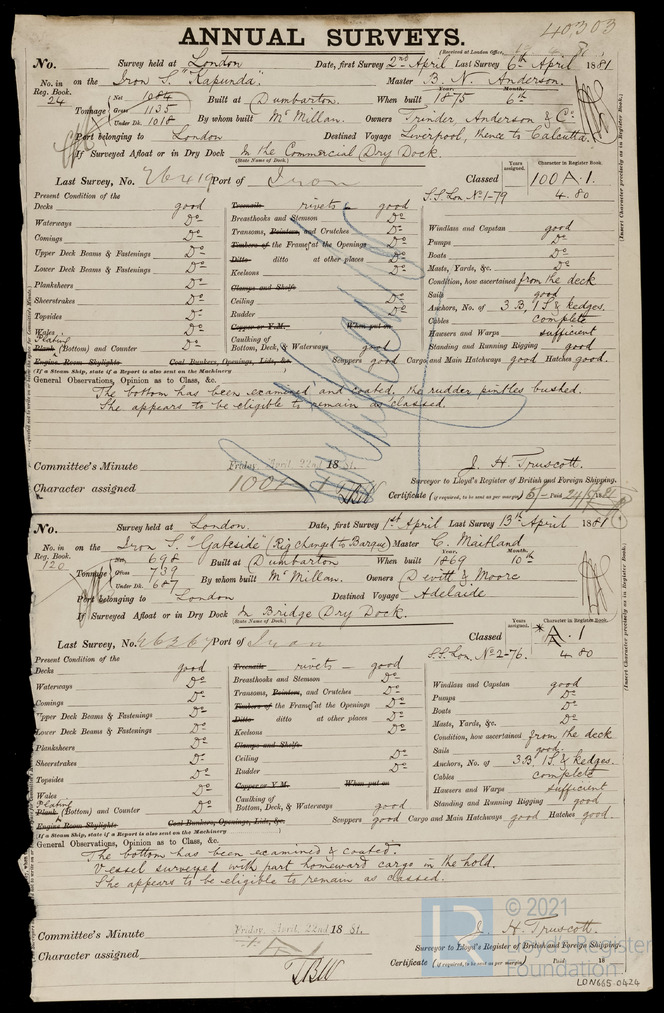 40,303
ANNUAL SURVEYS.
(Received at London Office,
No. Survey held at London Date, first Survey 2nd April Last Survey 6th April 1881
No. in Reg. Book. 24 on the Iron S. "Kapunda". Master B. N. Anderson.
Tonnage Net 1084 Gross 1135 Under Dk. 1018 Built at Dumbarton. When built Year. 1875 Month. 6th
By whom built McMillan. Owners Trinder, Anderson & Co.
Port belonging to London Destined Voyage Liverpool, thence to Calcutta.
If Surveyed Afloat or in Dry Dock In the Commercial Dry Dock.
(State Name of Dock.)
Years assigned. Character in Register Book.
Last Survey, No. 26419 Port of Iron Classed 100 A. 1.
S.S. Lon. No 1-79 4. 80
Present Condition of the
Decks good Treenails rivets – good
Waterways Do Breasthooks and Stemson Do Windlass and Capstan good
Comings Do Transoms, Pointers, and Crutches Do Pumps Do
Upper Deck Beams & Fastenings Do Timbers of the Frames at the Openings Do Boats Do
Lower Deck Beams & Fastenings Do Ditto ditto at other places Do Masts, Yards, &c. Do
Planksheers Do Keelsons Do Condition, how ascertained from the deck
Sheerstrakes Do Clamps and Shelfs Sails good
Topsides Do Ceiling Do Anchors, No. of 3 B, 1 S, & kedges.
Wales Do Rudder Do Cables complete
Plating Copper or Y.M. When put on Hawsers and Warps sufficient
Plank (Bottom) and Counter Do Caulking of Bottom, Deck, & Waterways good Standing and Running Rigging good
Engine Room Skylights Coal Bunkers, Openings, Lids, &c. Scuppers good Cargo and Main Hatchways good Hatches good.
(If a Steam Ship, state if a Report is also sent on the Machinery )
General Observations, Opinion as to Class, &c.
The bottom has been examined and coated, the rudder pintles bushed.
She appears to be eligible to remain as classed.
Committee's Minute Friday, April 22nd 18 81.
J. H. Truscott.
Surveyor to Lloyd's Register of British and Foreign Shipping.
Character assigned 100 A 1 TBW
Certificate (if required, to be sent as per margin) 5/-
No. Survey held at London. Date, first Survey 1st April Last Survey 13th April 1881
No. in Reg. Book. 120 on the Iron S. "Gateside" (Rig changed to Barque) Master C. Maitland
Tonnage Net 698 Gross 739 Under Dk. 687 Built at Dumbarton When built Year. 1869 Month. 10th
By whom built McMillan. Owners Devitt & Moore
Port belonging to London Destined Voyage Adelaide
If Surveyed Afloat or in Dry Dock In Bridge Dry Dock.
(State Name of Dock.)
Years assigned. Character in Register Book.
Last Survey, No. 26367 Port of Iron Classed *A. 1
S.S. Lon. No 2-76. 4. 80
Present Condition of the
Decks good Treenails rivets – good
Waterways Do Breasthooks and Stemson Do Windlass and Capstan good
Comings Do Transoms, Pointers, and Crutches Do Pumps Do
Upper Deck Beams & Fastenings Do Timbers of the Frames at the Openings Do Boats Do
Lower Deck Beams & Fastenings Do Ditto ditto at other places Do Masts, Yards, &c. Do
Planksheers Do Keelsons Do Condition, how ascertained from the deck
Sheerstrakes Do Clamps and Shelfs Sails good.
Topsides Do Ceiling Do Anchors, No. of 3 B, 1 S, & kedges.
Wales Do Rudder Do Cables complete
Plating Copper or Y.M. When put on Hawsers and Warps sufficient
Plank (Bottom) and Counter Do Caulking of Bottom, Deck, & Waterways good Standing and Running Rigging good
Engine Room Skylights Coal Bunkers, Openings, Lids, &c. Scuppers good Cargo and Main Hatchways good Hatches good.
(If a Steam Ship, state if a Report is also sent on the Machinery )
General Observations, Opinion as to Class, &c.
The bottom has been examined & coated.
Vessel surveyed with part homeward cargo in the hold.
She appears to be eligible to remain as classed.
Committee's Minute Friday, April 22nd 18 81.
J. H. Truscott.
Surveyor to Lloyd's Register of British and Foreign Shipping.
Character assigned A 1 TBW
Certificate (if required, to be sent as per margin) Paid 18
(Insert Character precisely as in Register Book.)
(Insert Character precisely as in Register Book.)
LR © 2021
Lloyd's Register
Foundation
LON665-0424